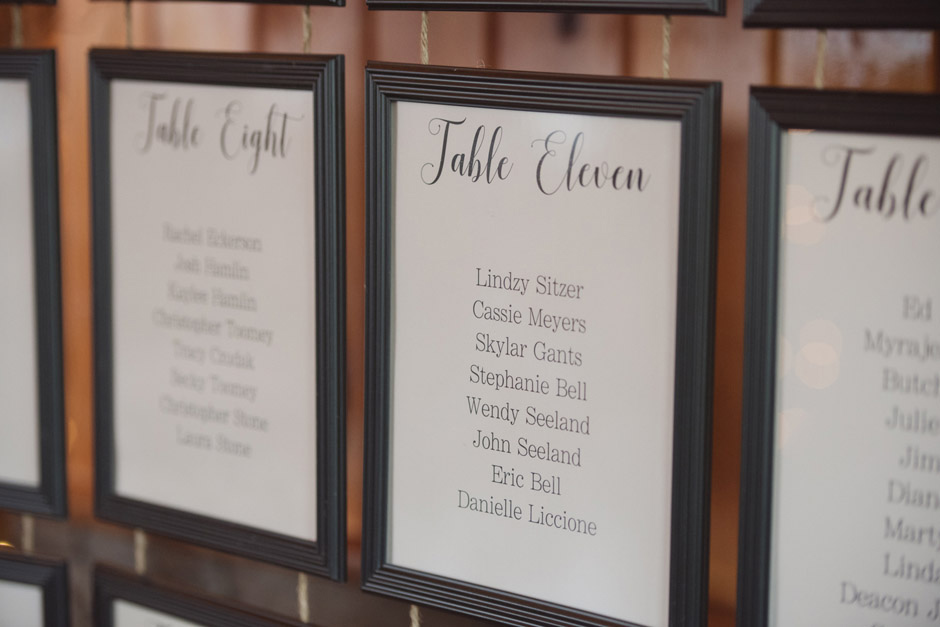 Table Eight
Rachel Eckerson
Josh Hamlin
Kaylee Hamlin
Christopher Toomey
Tracy
Becky Toomey
Christopher Stone
Laura Stone
Table Eleven
Lindzy Sitzer
Cassie Meyers
Skylar Gants
Stephanie Bell
Wendy Seeland
John Seeland
Eric Bell
Danielle Liccione
Table
Ed
Butch
Julie
Jim
Dian
Marty
Linda
Deacon J